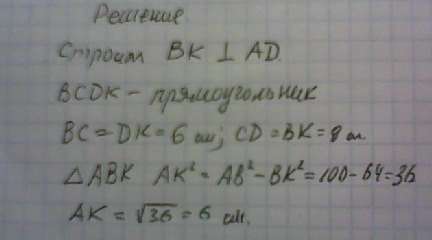 Решение
Строим BK ⊥ AD.
BCDK - прямоугольник
BC = DK = 6 см; CD = BK = 8 см
△ABK AK² = AB² - BK² = 100 - 64 = 36
AK = √36 = 6 см.